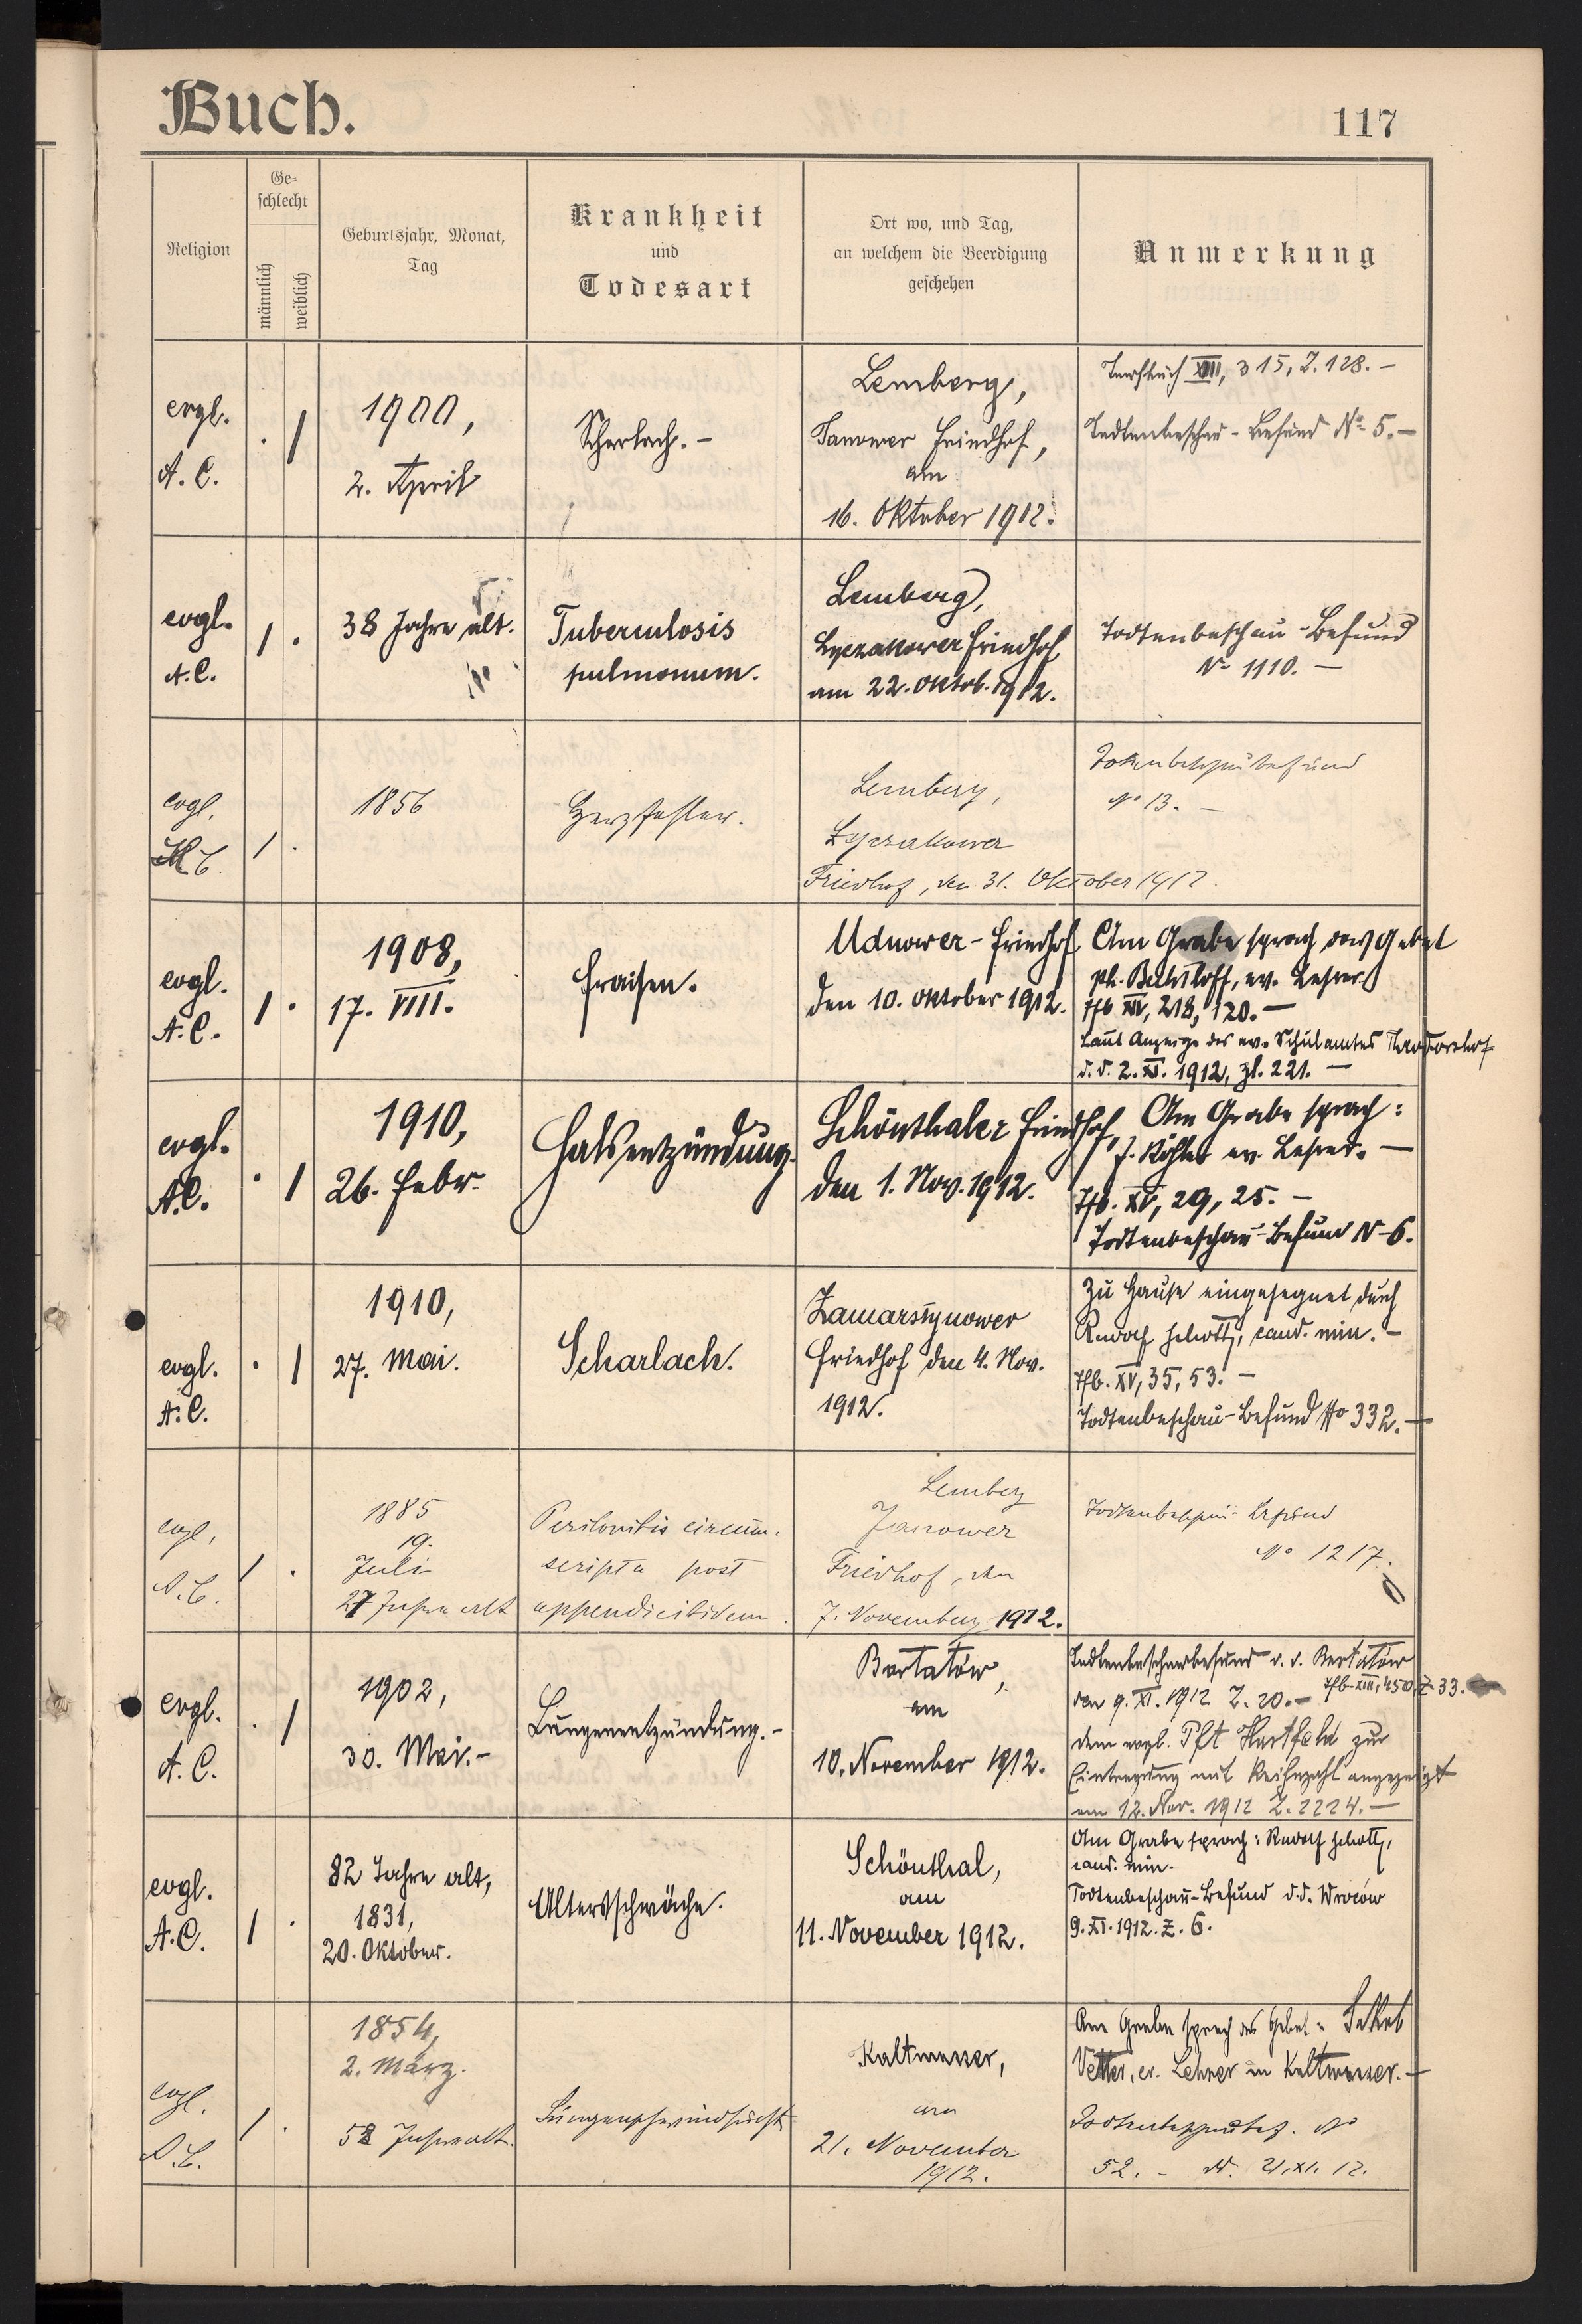 Buch.
117
Religion
Ge=
schlecht
männlich
weiblich
Geburtsjahr, Monat,
Tag
Krankheit
und
Todesart
Ort wo, und Tag,
an welchem die Beerdigung
geschehen
Anmerkung
evgl.
A. C.
. /
1900,
2. April
Scharlach. –
Lemberg,
Janower Friedhof,
am
16. Oktober 1912.
Taufbuch XIII, 315, Z. 128. –
Todtenbeschau-Befund No 5. –
evgl.
A. C.
/ .
38 Jahre alt.
Tuberculosis
pulmonum.
Lemberg,
Lyczakower Friedhof
am 22. Oktob. 1912.
Todtenbeschau-Befund
No 1110. –
evgl.
/ .
1856
Herzfehler.
Lemberg,
Lyczakower
Friedhof, den 31. Oktober 1912.
Totenbeschaubefund
No 13. –
evgl.
A. C.
/ .
1908,
17. VIII.
Fraisen.
Udnower-Friedhof
den 10. Oktober 1912.
Am Grabe sprach das Gebet
Ph. Bechtloff, ev. Lehrer.
Tfb XIV, 218, 120. –
Laut Anzeige des ev. Schulamtes Theodorshof
d. d. 2. XI. 1912, Zl. 221. –
evgl.
A. C.
. /
1910,
26. Febr.
Halsentzündung.
Schönthaler Friedhof,
den 1. Nov. 1912.
Am Grabe sprach:
J. Köhler ev. Lehrer. –
Tfb. XV, 29, 25. –
Todtenbeschau-Befund N- 6.
evgl.
A. C.
. /
1910,
27. Mai.
Scharlach.
Zamarstynower
Friedhof den 4. Nov.
1912.
Zu Hause eingesegnet durch
Rudolf Schott, cand. min. –
Tfb. XV, 35, 53. –
Todtenbeschau-Befund No 332. –
evgl.
A. C.
/ .
1885
19.
Juli
27 Jahre alt
Peritonitis circum-
scripta post
appendicitidem.
Lemberg
Janower
Friedhof, den
7. November 1912.
Todtenbeschau-Befund
No 1217.
evgl.
A. C.
. /
1902,
30. Mai. –
Lungenentzündung. –
Bartatów,
am
10. November 1912.
Todtenbeschaubefund d. d. Bartatów
den 9. XI. 1912 Z. 20. – Tfb. XIII, 450, Z. 33.
dem evgl. Pft Hartfeld zur
Eintragung mit Reihezahl angezeigt
am 12. Nov. 1912 Z. 2224. –
evgl.
A. C.
/ .
82 Jahre alt,
1831,
20. Oktober.
Altersschwäche.
Schönthal,
am
11. November 1912.
Am Grabe sprach: Rudolf Schott,
cand. min.
Todtenbeschau-Befund d. d. Wroców
9. XI. 1912. Z. 6.
evgl.
A. C.
/ .
1854,
2. März.
58 Jahre alt.
Lungenschwindsucht
Kaltwasser,
am
21. November
1912.
Am Grabe sprach das Gebet: Jakob
Vetter, ev. Lehrer in Kaltwasser. –
Todtenbeschaubef. No
52. – dd. 21. XI. 12.